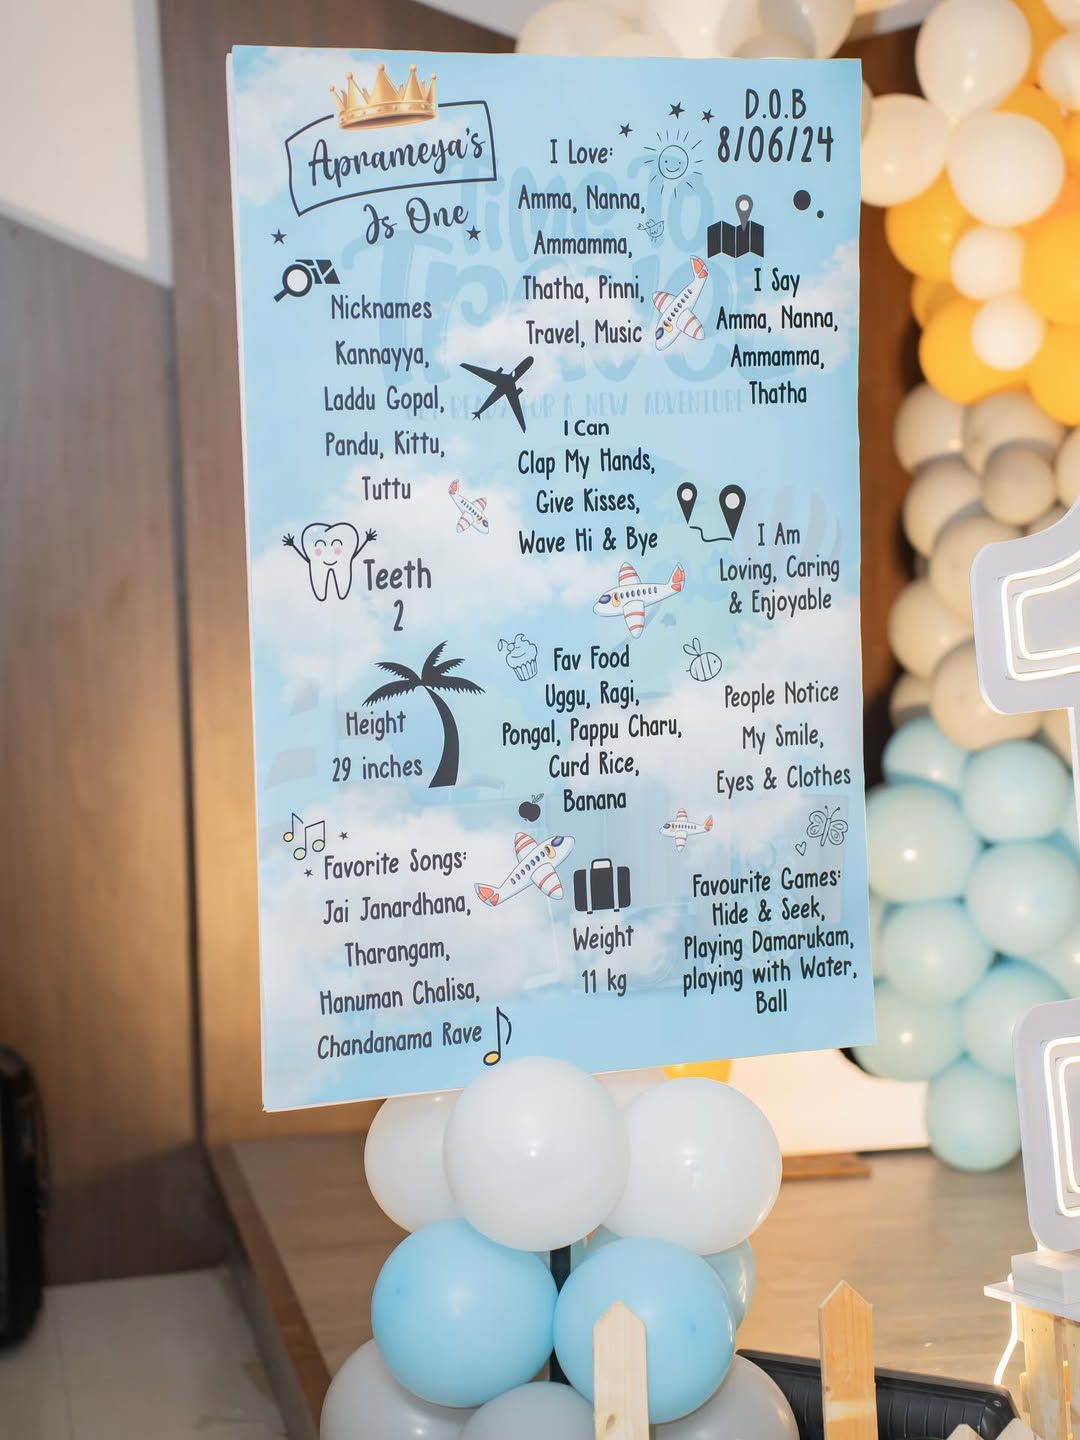 Aprameya's
Is One
Nicknames
Kannayya,
Laddu Gopal,
Pandu, Kittu,
Tuttu
Teeth
2
Height
29 inches
Favorite Songs:
Jai Janardhana,
Tharangam,
Hanuman Chalisa,
Chandanama Rave
I Love:
Amma, Nanna,
Ammamma,
Thatha, Pinni,
Travel, Music
I Can
Clap My Hands,
Give Kisses,
Wave Hi & Bye
Fav Food
Uggu, Ragi,
Pongal, Pappu Charu,
Curd Rice,
Banana
Weight
11 kg
D.O.B
8/06/24
I Say
Amma, Nanna,
Ammamma,
Thatha
I Am
Loving, Caring
& Enjoyable
People Notice
My Smile,
Eyes & Clothes
Favourite Games:
Hide & Seek,
Playing Damarukam,
playing with Water,
Ball
Time To
Travel
GET READY FOR A NEW ADVENTURE
1